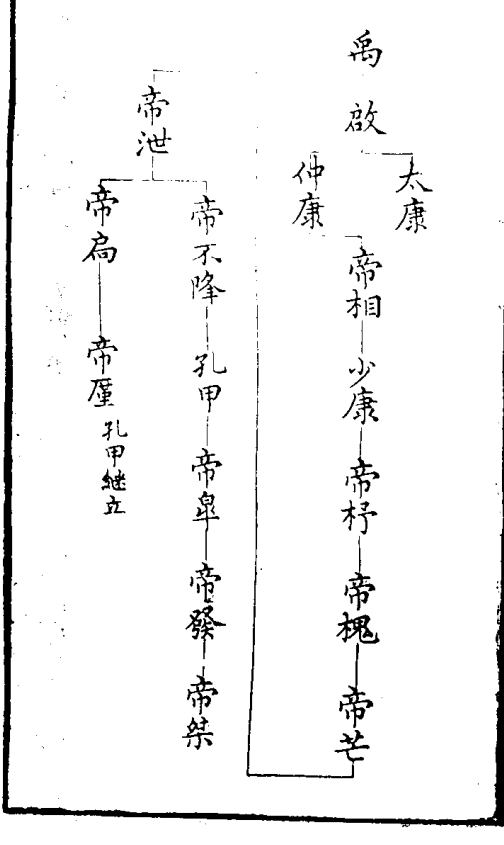 禹
啟
太康
仲康
帝相
少康
帝杼
帝槐
帝芒
帝泄
帝不降
孔甲
帝皐
帝發
帝桀
帝扃
帝厪
孔甲継立